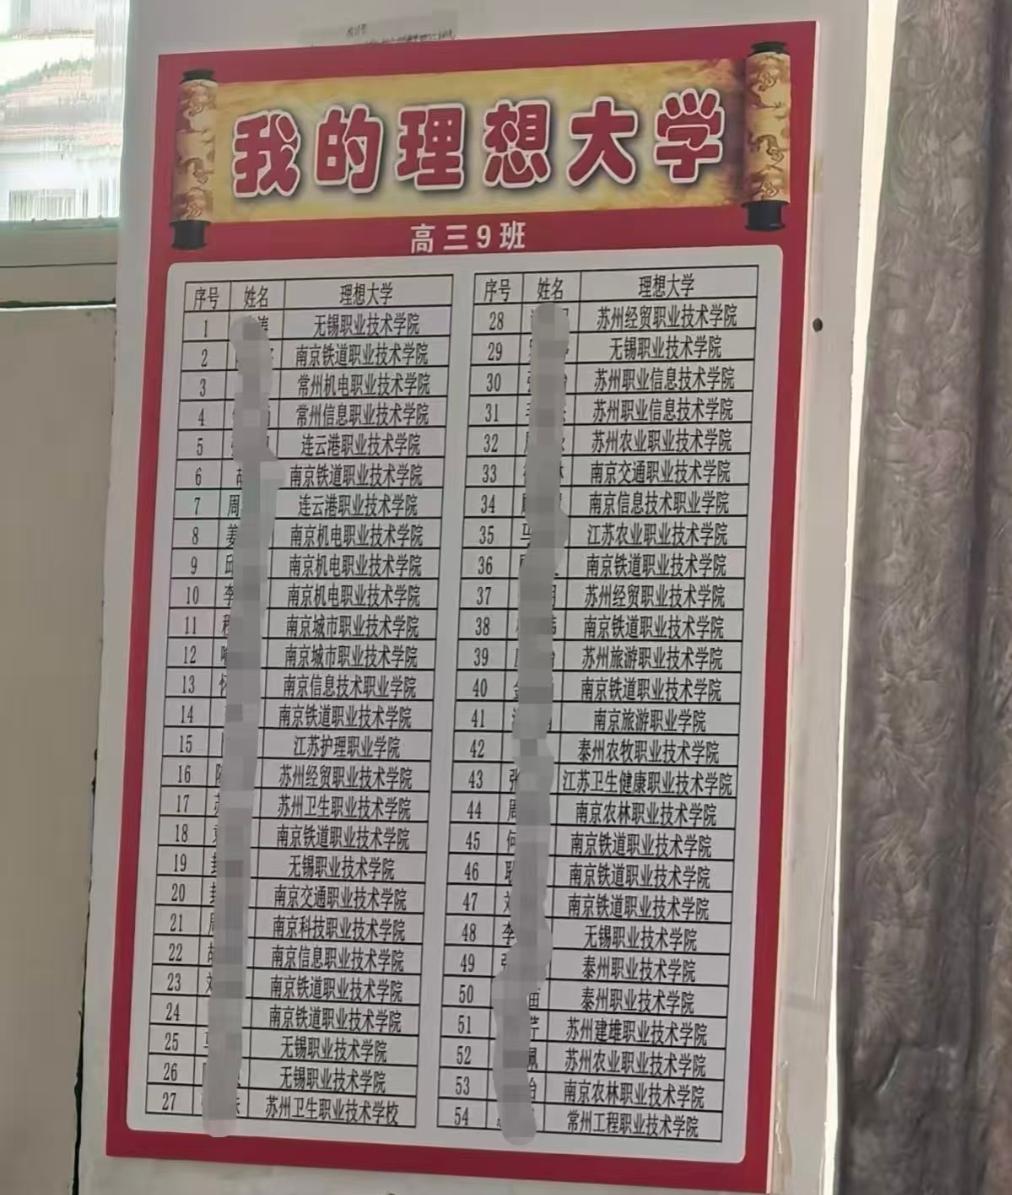 我的理想大学
高三9班
序号 姓名 理想大学
1 涛 无锡职业技术学院
2 南京铁道职业技术学院
3 常州机电职业技术学院
4 常州信息职业技术学院
5 连云港职业技术学院
6 胡 南京铁道职业技术学院
7 周 连云港职业技术学院
8 姜 南京机电职业技术学院
9 邱 南京机电职业技术学院
10 李 南京机电职业技术学院
11 程 南京城市职业技术学院
12 喻 南京城市职业技术学院
13 怀 南京信息技术职业学院
14 南京铁道职业技术学院
15 江苏护理职业学院
16 陈 苏州经贸职业技术学院
17 苏州卫生职业技术学院
18 南京铁道职业技术学院
19 封 无锡职业技术学院
20 封 南京交通职业技术学院
21 周 南京科技职业技术学院
22 胡 南京信息职业技术学院
23 刘 南京铁道职业技术学院
24 南京铁道职业技术学院
25 无锡职业技术学院
26 无锡职业技术学院
27 苏州卫生职业技术学校
序号 姓名 理想大学
28 苏州经贸职业技术学院
29 无锡职业技术学院
30 张 苏州职业信息技术学院
31 苏州职业信息技术学院
32 苏州农业职业技术学院
33 南京交通职业技术学院
34 南京信息技术职业学院
35 马 江苏农业职业技术学院
36 南京铁道职业技术学院
37 苏州经贸职业技术学院
38 南京铁道职业技术学院
39 苏州旅游职业技术学院
40 金 南京铁道职业技术学院
41 南京旅游职业学院
42 泰州农牧职业技术学院
43 张 江苏卫生健康职业技术学院
44 周 南京农林职业技术学院
45 何 南京铁道职业技术学院
46 耿 南京铁道职业技术学院
47 刘 南京铁道职业技术学院
48 李 无锡职业技术学院
49 张 泰州职业技术学院
50 苗 泰州职业技术学院
51 芹 苏州建雄职业技术学院
52 佩 苏州农业职业技术学院
53 南京农林职业技术学院
54 常州工程职业技术学院